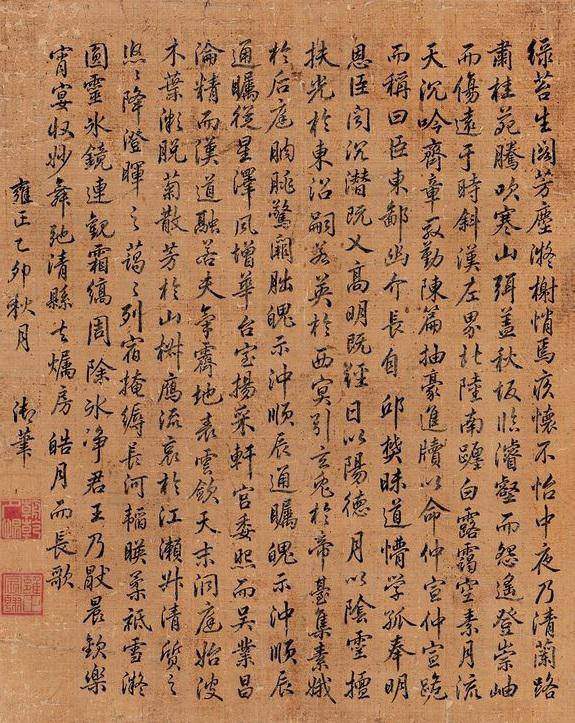 綠苔生閣芳塵凝榭悄焉疚懷不怡中夜乃清蘭路
肅桂苑騰吹寒山弭蓋秋坂臨濬壑而怨遙登崇岫
而傷遠于時斜漢左界北陸南躔白露靄空素月流
天沉吟齊章殷勤陳篇抽豪進牘以命仲宣仲宣跪
而稱曰臣東鄙幽介長自邱樊昧道懵學孤奉明
恩臣聞沉潛既乂高明既經日以陽德月以陰靈擅
扶光於東沼嗣若英於西冥引玄兔於帝臺集素娥
於后庭朒朓驚闕朏魄示沖順辰通矚魄示沖順辰
通矚從星澤風增華台室揚采軒宮委照而吳業昌
淪精而漢道融若夫氣霽地表雲斂天末洞庭始波
木葉漸脫菊散芳於山椒雁流哀於江瀨升清質之
悠々降澄暉之藹々列宿掩縟長河韜暎柔祇雪凝
圓靈冰鏡連觀霜縞周除冰淨君王乃厭晨歡樂
宵宴收妙舞弛清縣去燭房皓月而長歌
雍正乙卯秋月 御筆